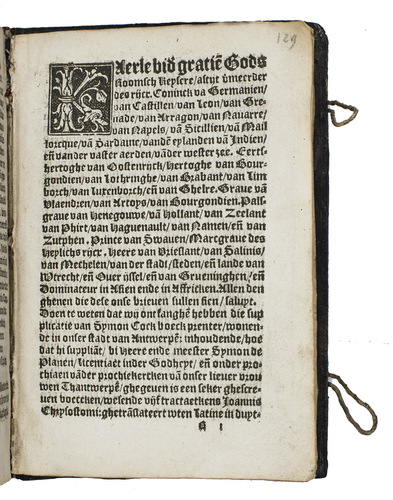 129
Kaerle bid gratiē Gods
Roomsch Keysere/altyt vmeerder
des rijcx. Coninck vā Germanien/
van Castillen/van Leon/van Gre-
nade/van Arragon/van Navarre/
van Napels/vā Sicillien/vā Mail
iorcque/vā Sardaine/vandē eylanden vā Indien/
eñ vander vaster aerden/vāder wester zee. Eerts-
hertoghe van Oostenrijck/hertoghe van Bour-
gondien/van Lothringhe/van Brabant/van Lim
borch/van Luxenborch/eñ van Ghelre. Graue vā
Vlaendren/van Artoys/van Bourgondien. Pals-
graue van Henegouwe/vā Hollant/van Zeelant
van Phirt/van Haguenault/van Namen/eñ van
Zutphen. Prince van Swauen/Marcgraue des
heylichs rijcx. Heere van Vrieslant/van Salinis/
van Mechelen/van der stadt/steden/eñ lande van
Wtrecht/eñ Ouer ijssel/eñ van Grueninghen/eñ
Dominateur in Asien ende in Affricken. Allen den
ghenen die dese onse brieuen sullen sien/saluyt.
Doen te weten dat wij ontfanghē hebben die sup
plicatie van Symon Cock boeck prenter/wonen-
de in onser stadt van Antwerpē: inhoudende/hoe
dat hi suppliāt/bi heere ende meester Symon de
Planen/licentiaet inder Godheyt/eñ onder pro-
chiaen vāder prochiekercken vā onser lieuer vrou
wen Thantwerpē/ghegeuen is een seker ghescre-
uen boecxken/wesende vijf tractaetkens Joannis
Chrysostomi: ghetrāslateert wten Latine in duyt-
A i